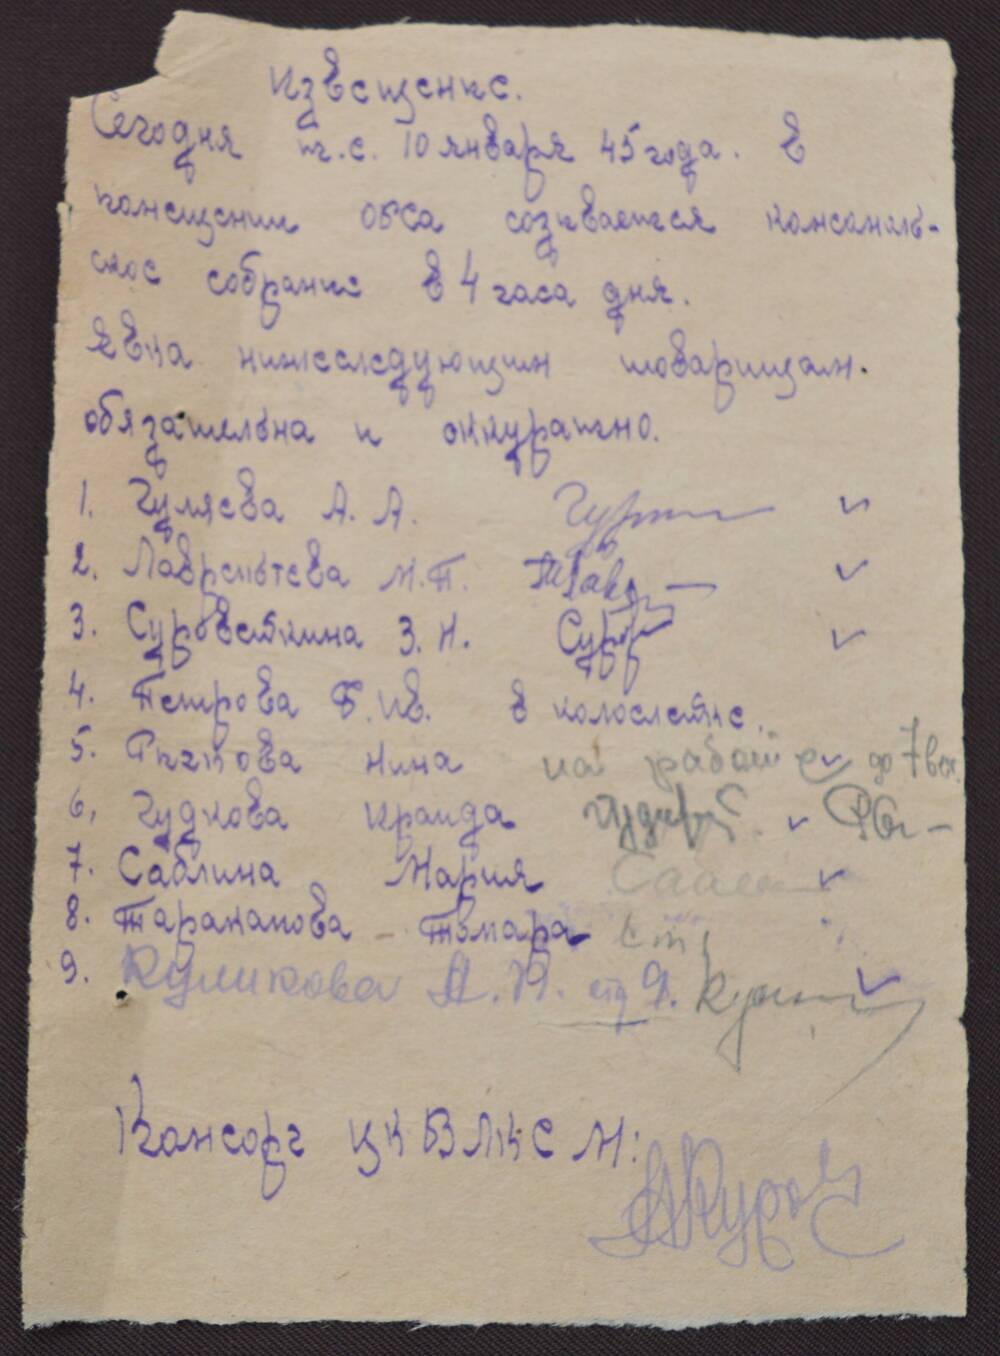 Извещение.
Сегодня т.е. 10 января 45 года. в
помещении ОВСа созывается комсомоль-
ское собрание в 4 часа дня.
Явка нижеследующим товарищам.
обязательна и аккуратно.
1. Гуляева А. А.
2. Лаврентьева М. П. Лавр
3. Суровяткина З. Н. Суров
4. Петрова Б. Ив. в колослетие.
5. Рыжова Нина на работе до 7 веч.
6. Гудкова Ираида Гудков
7. Саблина Мария Сабл
8. Тараканова Тамара
9. Куликова А. Я. Кули
Комсорг ЦК ВЛКСМ: